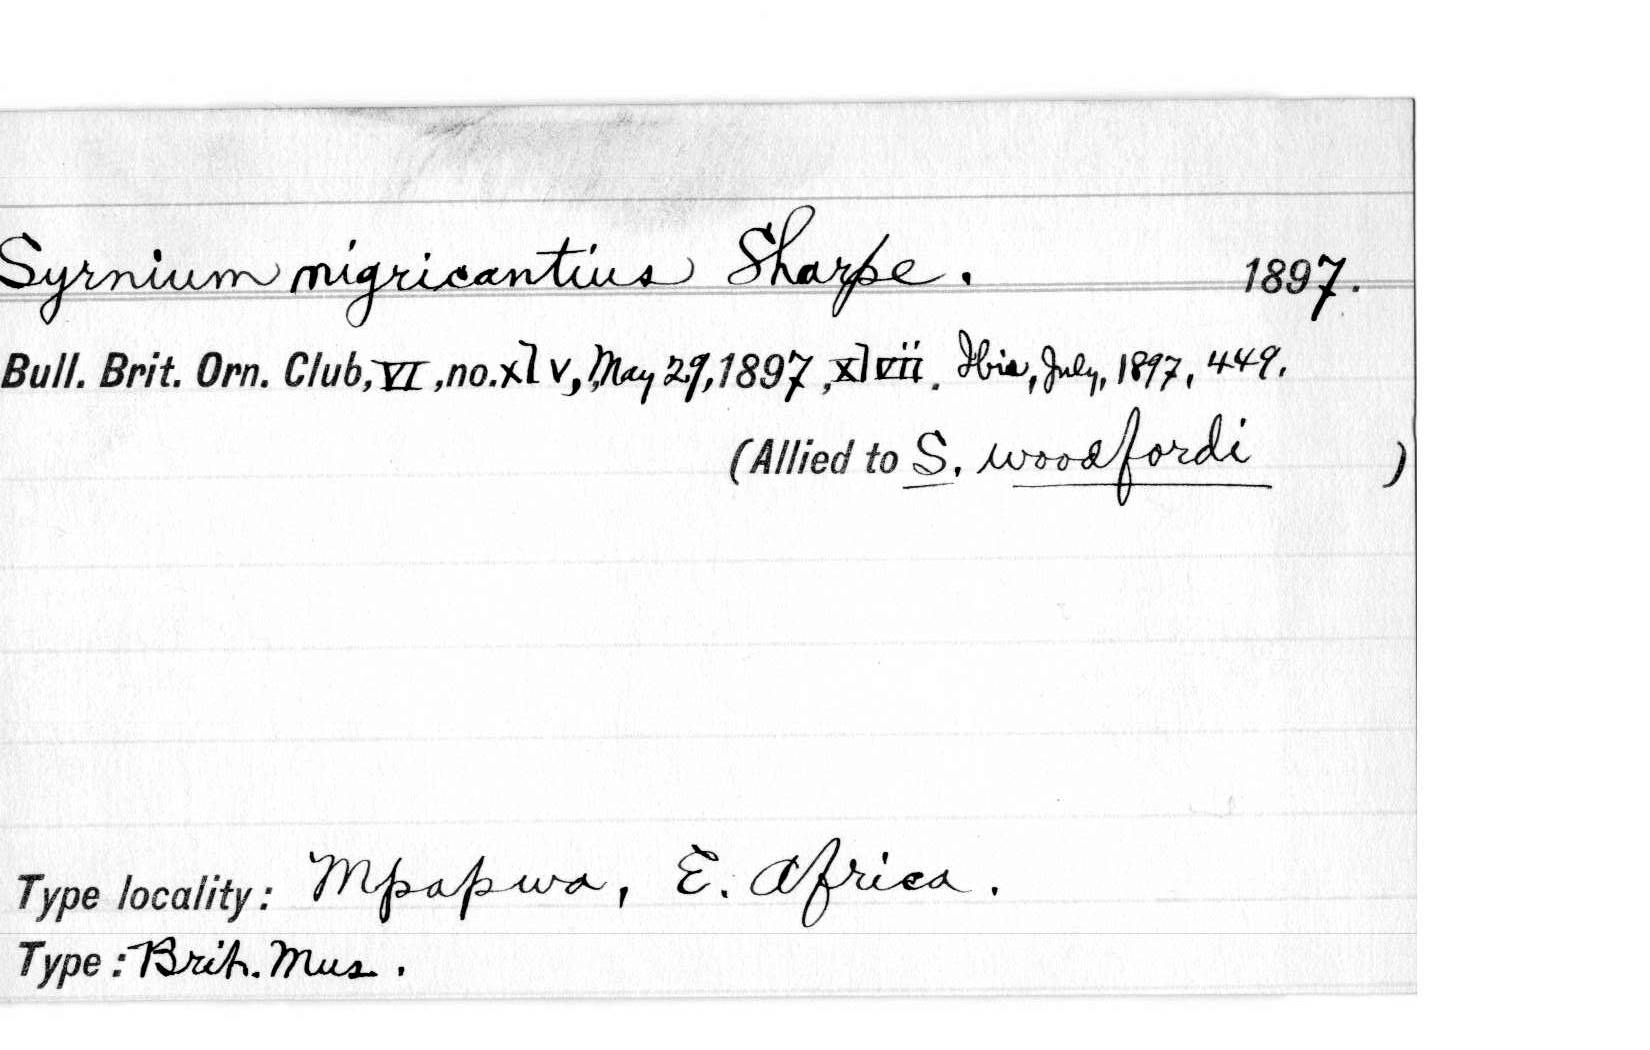 Syrnium nigricantius Sharpe. 1897.
Bull. Brit. Orn. Club, VI, no. xlv, May 29, 1897, xlvii. Ibis, July, 1897, 449.
(Allied to S. woodfordi )
Type locality: Mpapwa, E. Africa.
Type: Brit. Mus.